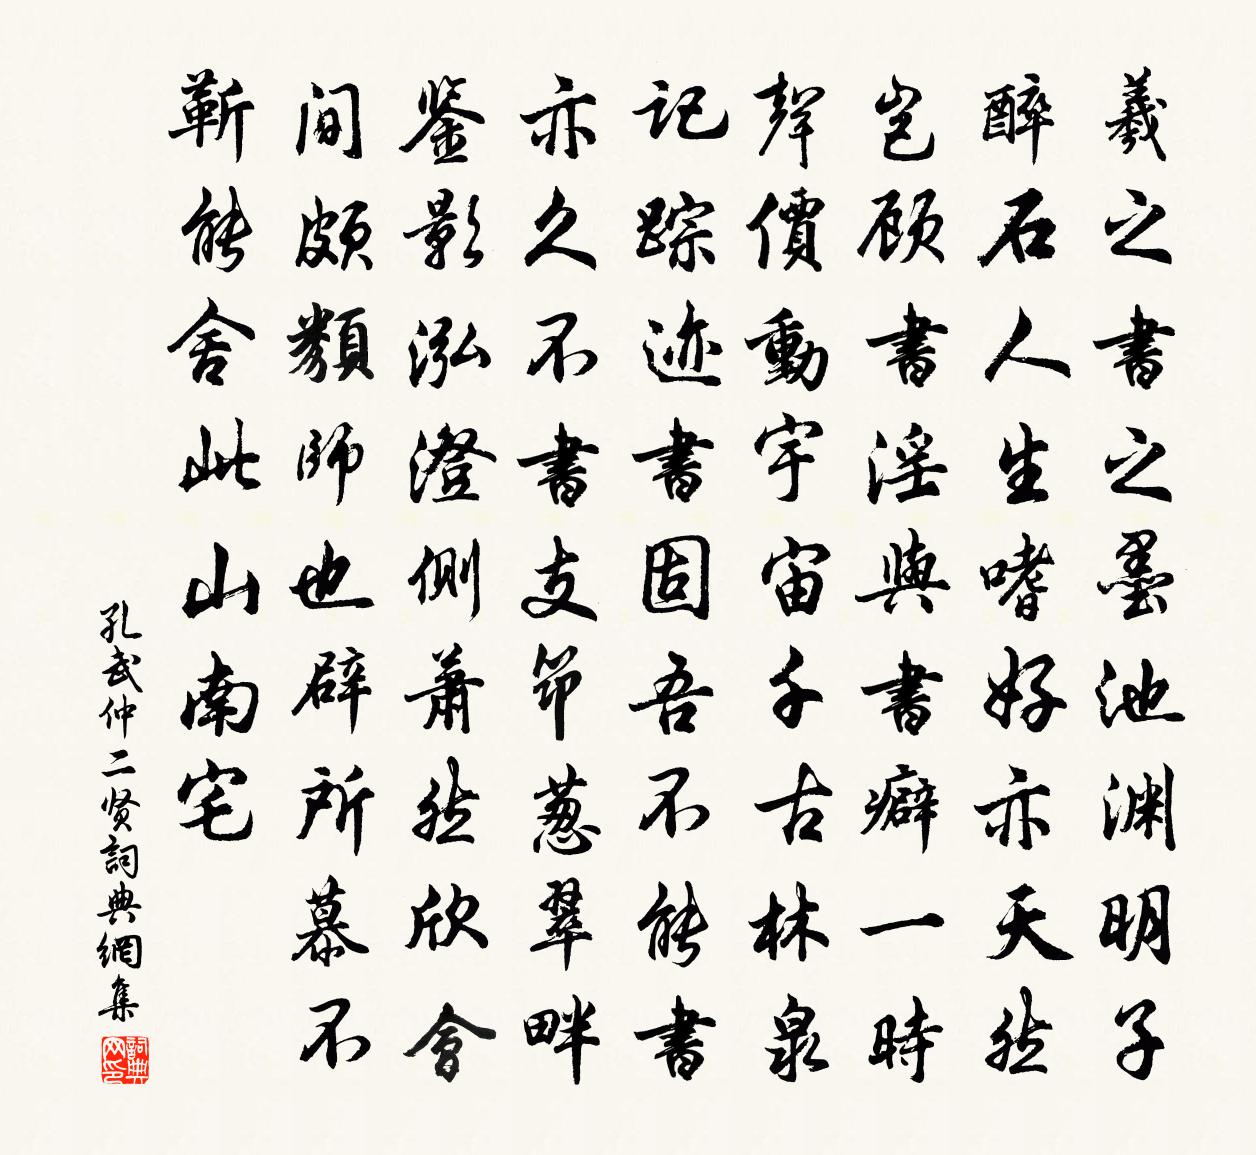 羲之書之墨池渊明子
醉石人生嗜好亦天然
岂顾書淫與書癖一時
聲價動宇宙千古林泉
记踪迹書固吾不能書
亦久不書支筇葱翠畔
鉴影泓澄側萧然欣會
间頗類師也辟所慕不
蕲能舍此山南宅
孔武仲二贤詞典網集
詞典网印